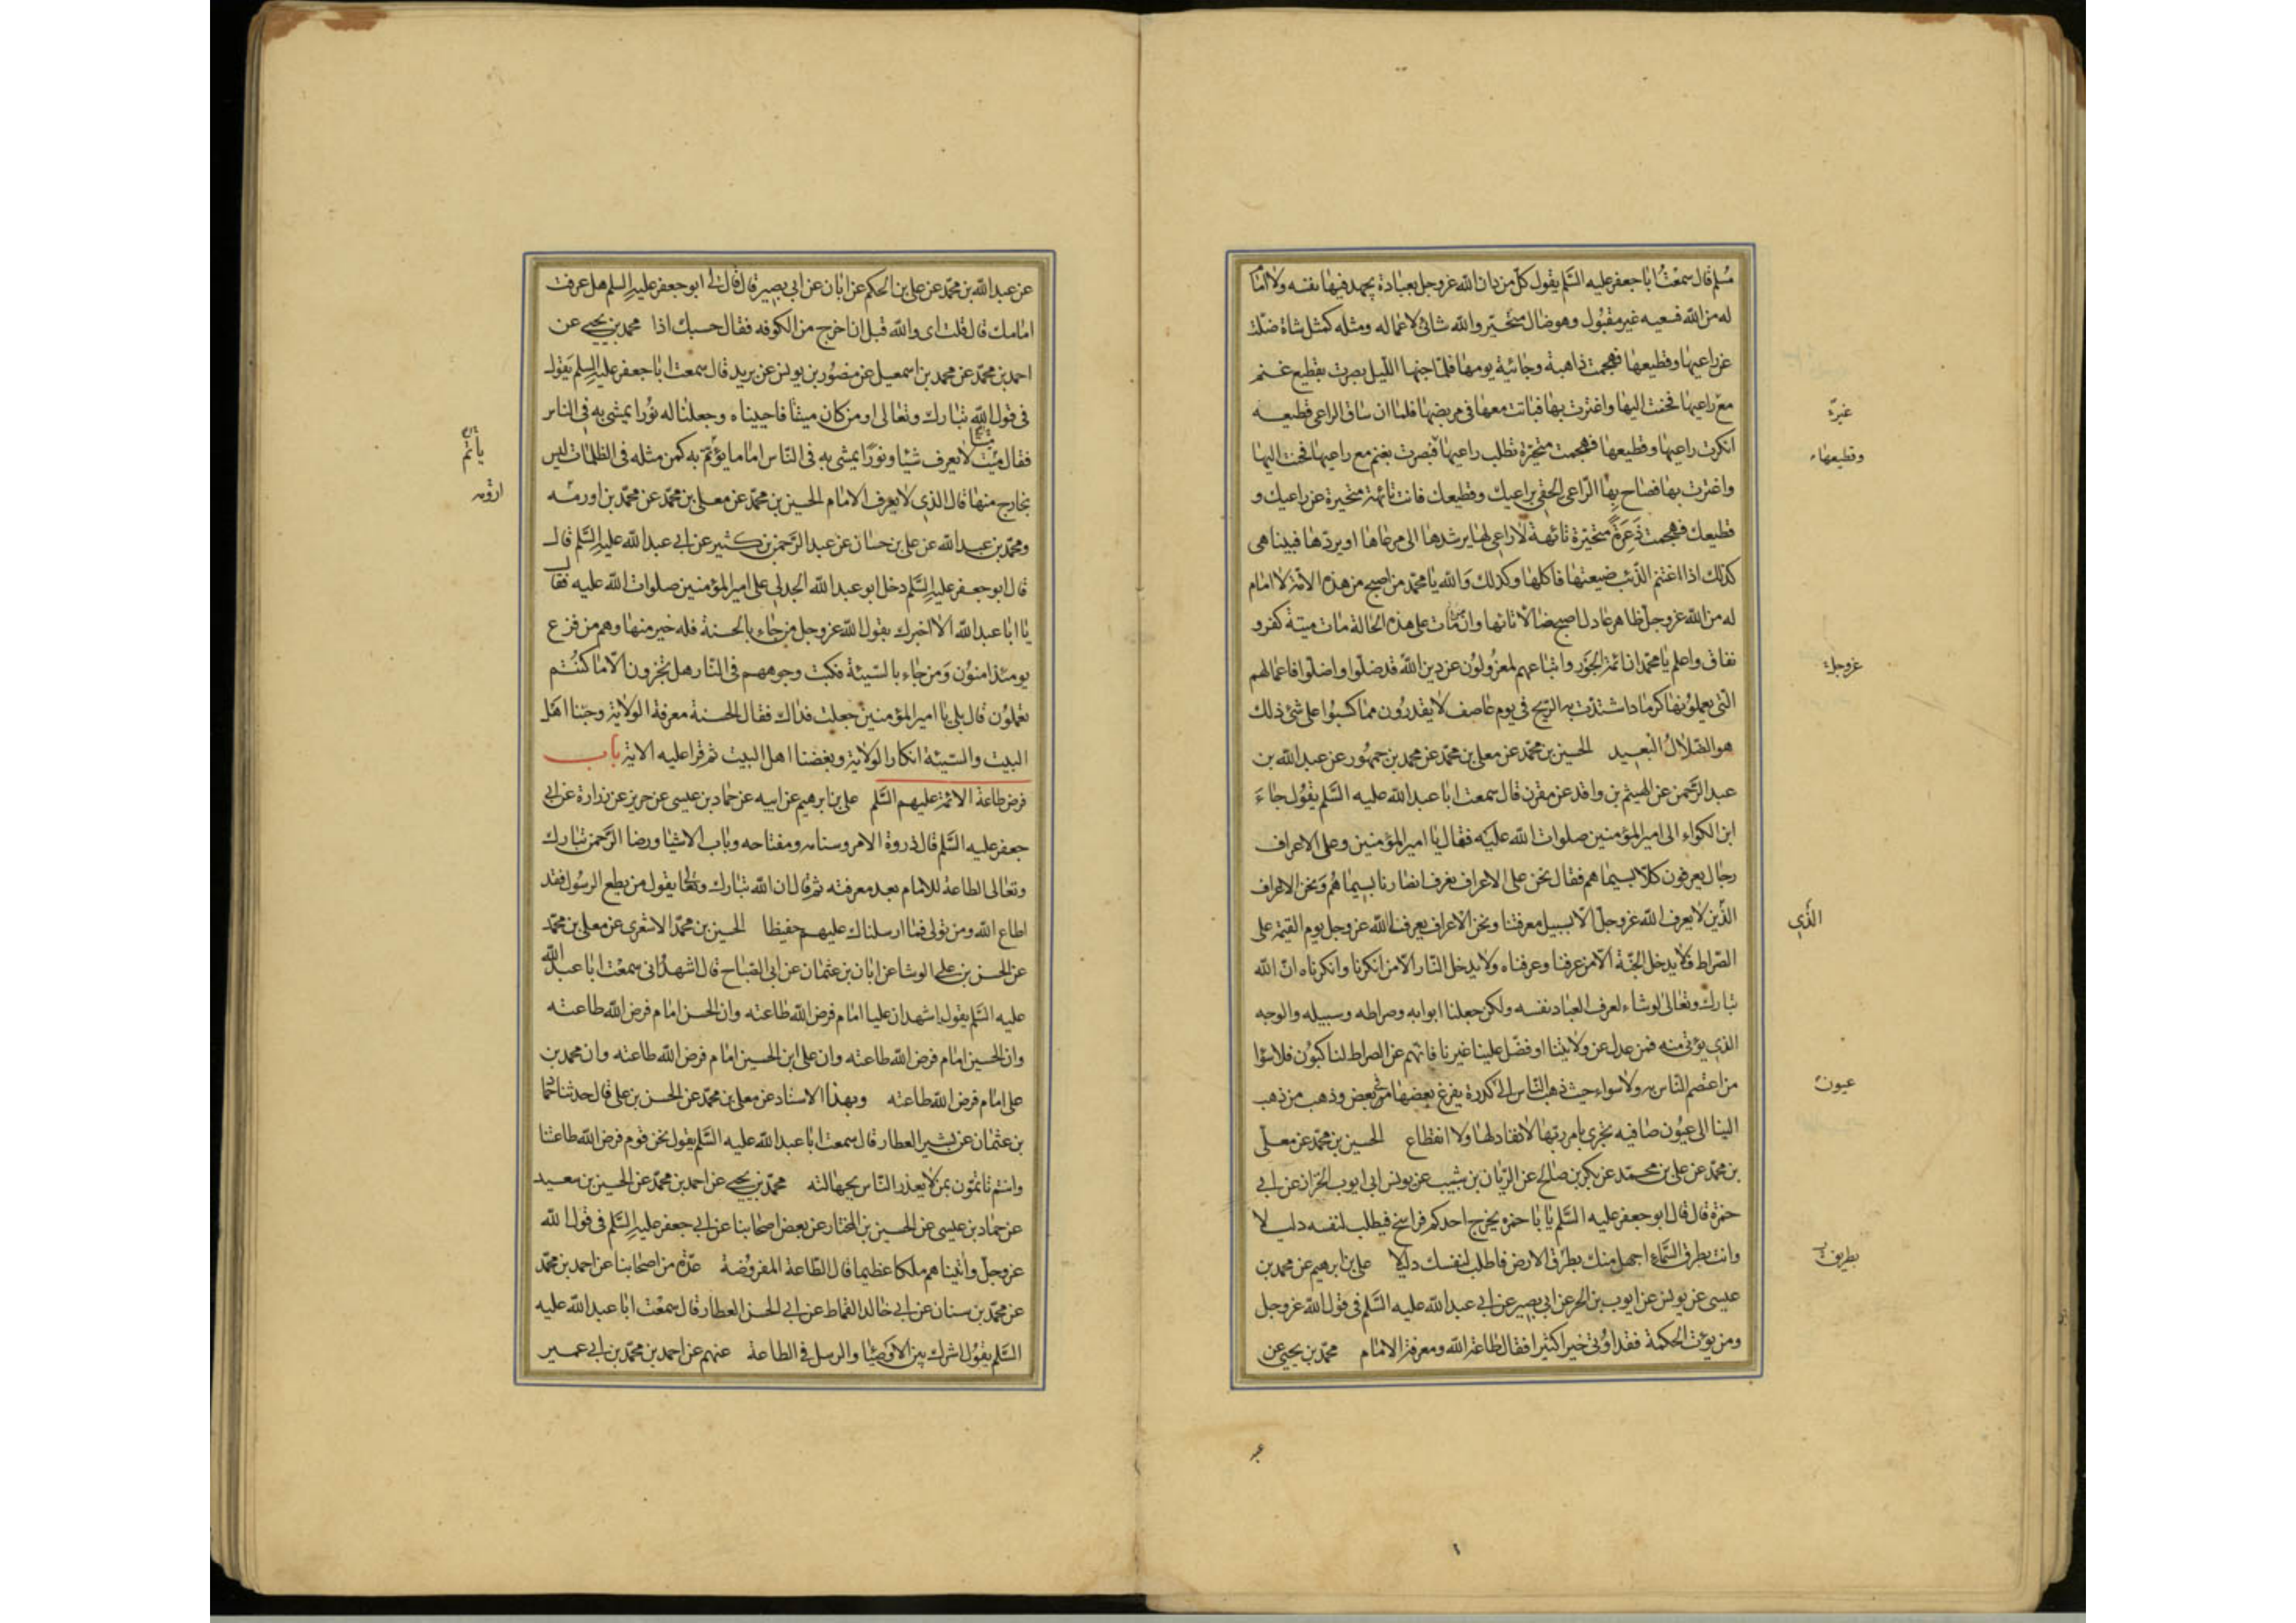 مسلم قال سمعت ابا جعفر عليه السلم يقول كل من دان الله عز وجل بعبادة يجهد فيها نفسه ولا امام
له من الله فسعيه غير مقبول وهو ضال متحير والله شانئ لاعماله ومثله كمثل شاة ضلت
عن راعيها وقطيعها فهجمت ذاهبة وجائية يومها فلما جنها الليل بصرت بقطيع غنم
مع راعيها فحنت اليها واغترت بها فباتت معها في مربضها فلما ان ساق الراعي قطيعه
انكرت راعيها وقطيعها فهجمت متحيرة تطلب راعيها فبصرت بغنم مع راعيها فحنت اليها
واغترت بها فصاح بها الراعي الحقي براعيك وقطيعك فانت تائهة متحيرة عن راعيك و
قطيعك فهجمت ذعرة متحيرة تائهة لا راعي لها يرشدها الى مرعاها او يردها فبينا هي
كذلك اذا اغتنم الذئب ضيعتها فاكلها وكذلك والله يا محمد من اصبح من هذه الامة لا امام
له من الله عز وجل ظاهر عادل اصبح ضالا تائها وان مات على هذه الحالة مات ميتة كفر و
نفاق واعلم يا محمد ان ائمة الجور واتباعهم لمعزولون عن دين الله قد ضلوا واضلوا فاعمالهم
التي يعملونها كرماد اشتدت به الريح في يوم عاصف لا يقدرون مما كسبوا على شئ ذلك
هو الضلال البعيد الحسين بن محمد عن معلى بن محمد عن محمد بن جمهور عن عبد الله بن
عبد الرحمن عن الهيثم بن واقد عن مقرن قال سمعت ابا عبد الله عليه السلم يقول جاء
ابن الكواء الى امير المؤمنين صلوات الله عليه فقال يا امير المؤمنين وعلى الاعراف
رجال يعرفون كلا بسيماهم فقال نحن على الاعراف نعرف انصارنا بسيماهم ونحن الاعراف
الذين لا يعرف الله عز وجل الا بسبيل معرفتنا ونحن الاعراف يعرفنا الله عز وجل يوم القيمة على
الصراط فلا يدخل الجنة الا من عرفنا وعرفناه ولا يدخل النار الا من انكرنا وانكرناه ان الله
تبارك وتعالى لو شاء لعرف العباد نفسه ولكن جعلنا ابوابه وصراطه وسبيله والوجه
الذي يؤتى منه فمن عدل عن ولايتنا او فضل علينا غيرنا فانهم عن الصراط لناكبون فلا سواء
من اعتصم الناس به ولا سواء حيث ذهب الناس الى كدرة يفرغ بعضها من بعض وذهب من ذهب
الينا الى عيون صافيه تجري بامر ربها لا نفاد لها ولا انقطاع الحسين بن محمد عن معلى
بن محمد عن علي بن محمد عن بكر بن صالح عن الريان بن شبيب عن يونس عن ابي ايوب الخزاز عن ابي
حمزة قال قال ابو جعفر عليه السلم يا با حمزه يخرج احدكم فراسخ فيطلب لنفسه دليلا
وانت بطرق السماء اجهل منك بطرق الارض فاطلب لنفسك دليلا علي بن ابرهيم عن محمد بن
عيسى عن يونس عن ايوب بن الحر عن ابي بصير عن ابي عبد الله عليه السلم في قول الله عز وجل
ومن يؤت الحكمة فقد اوتي خيرا كثيرا فقال طاعة الله ومعرفة الامام محمد بن يحيى عن
وقطيعهاء
عز وجل
الذي
عيون
عن عبد الله بن محمد عن علي بن الحكم عن ابان عن ابي بصير قال قال لي ابو جعفر عليه السلم هل عرفت
امامك قال قلت اى والله قبل ان اخرج من الكوفه فقال حسبك اذا محمد بن يحيى عن
احمد بن محمد عن محمد بن اسمعيل عن منصور بن يونس عن بريد قال سمعت ابا جعفر عليه السلم يقول
في قول الله تبارك وتعالى اومن كان ميتا فاحييناه وجعلنا له نورا يمشي به في الناس
فقال ميت لا يعرف شيئا ونورا يمشي به في الناس اماما يؤتم به كمن مثله في الظلمات ليس
بخارج منها قال الذي لا يعرف الامام الحسين بن محمد عن معلى بن محمد عن محمد بن اورمه
ومحمد بن عبد الله عن علي بن حسان عن عبد الرحمن بن كثير عن ابي عبد الله عليه السلم قال
قال ابو جعفر عليه السلم دخل ابو عبد الله الجدلي على امير المؤمنين صلوات الله عليه فقال
يا ابا عبد الله الا اخبرك بقول الله عز وجل من جاء بالحسنة فله خير منها وهم من فزع
يومئذ امنون ومن جاء بالسيئة فكبت وجوههم في النار هل تجزون الا ما كنتم
تعملون قال بلى يا امير المؤمنين جعلت فداك فقال الحسنة معرفة الولاية وحبنا اهل
البيت والسيئة انكار الولاية وبغضنا اهل البيت ثم قرا عليه الاية باب
فرض طاعة الائمة عليهم السلم علي بن ابرهيم عن ابيه عن حماد بن عيسى عن حريز عن زرارة عن ابي
جعفر عليه السلم قال ذروة الامر وسنامه ومفتاحه وباب الاشيا ورضا الرحمن تبارك
وتعالى الطاعة للامام بعد معرفته ثم قال ان الله تبارك وتعالى يقول من يطع الرسول فقد
اطاع الله ومن تولى فما ارسلناك عليهم حفيظا الحسين بن محمد الاشعرى عن معلى بن محمد
عن الحسن بن علي الوشا عن ابان بن عثمان عن ابي الصباح قال اشهد اني سمعت ابا عبد الله
عليه السلم يقول اشهد ان عليا امام فرض الله طاعته وان الحسن امام فرض الله طاعته
وان الحسين امام فرض الله طاعته وان علي ابن الحسين امام فرض الله طاعته وان محمد بن
علي امام فرض الله طاعته وبهذا الاسناد عن معلى بن محمد عن الحسن بن علي قال حدثنا حماد
بن عثمان عن بشير العطار قال سمعت ابا عبد الله عليه السلم يقول نحن قوم فرض الله طاعتنا
وانتم تاتمون بمن لا يعذر الناس بجهالته محمد بن يحيى عن احمد بن محمد عن الحسين بن سعيد
عن حماد بن عيسى عن الحسين بن المختار عن بعض اصحابنا عن ابي جعفر عليه السلم في قول الله
عز وجل واتيناهم ملكا عظيما قال الطاعة المفروضة عدة من اصحابنا عن احمد بن محمد
عن محمد بن سنان عن ابي خالد القماط عن ابي الحسن العطار قال سمعت ابا عبد الله عليه
السلم يقول اشرك بين الاوصيا والرسل في الطاعة عنهم عن احمد بن محمد بن ابي عمير
ياتم